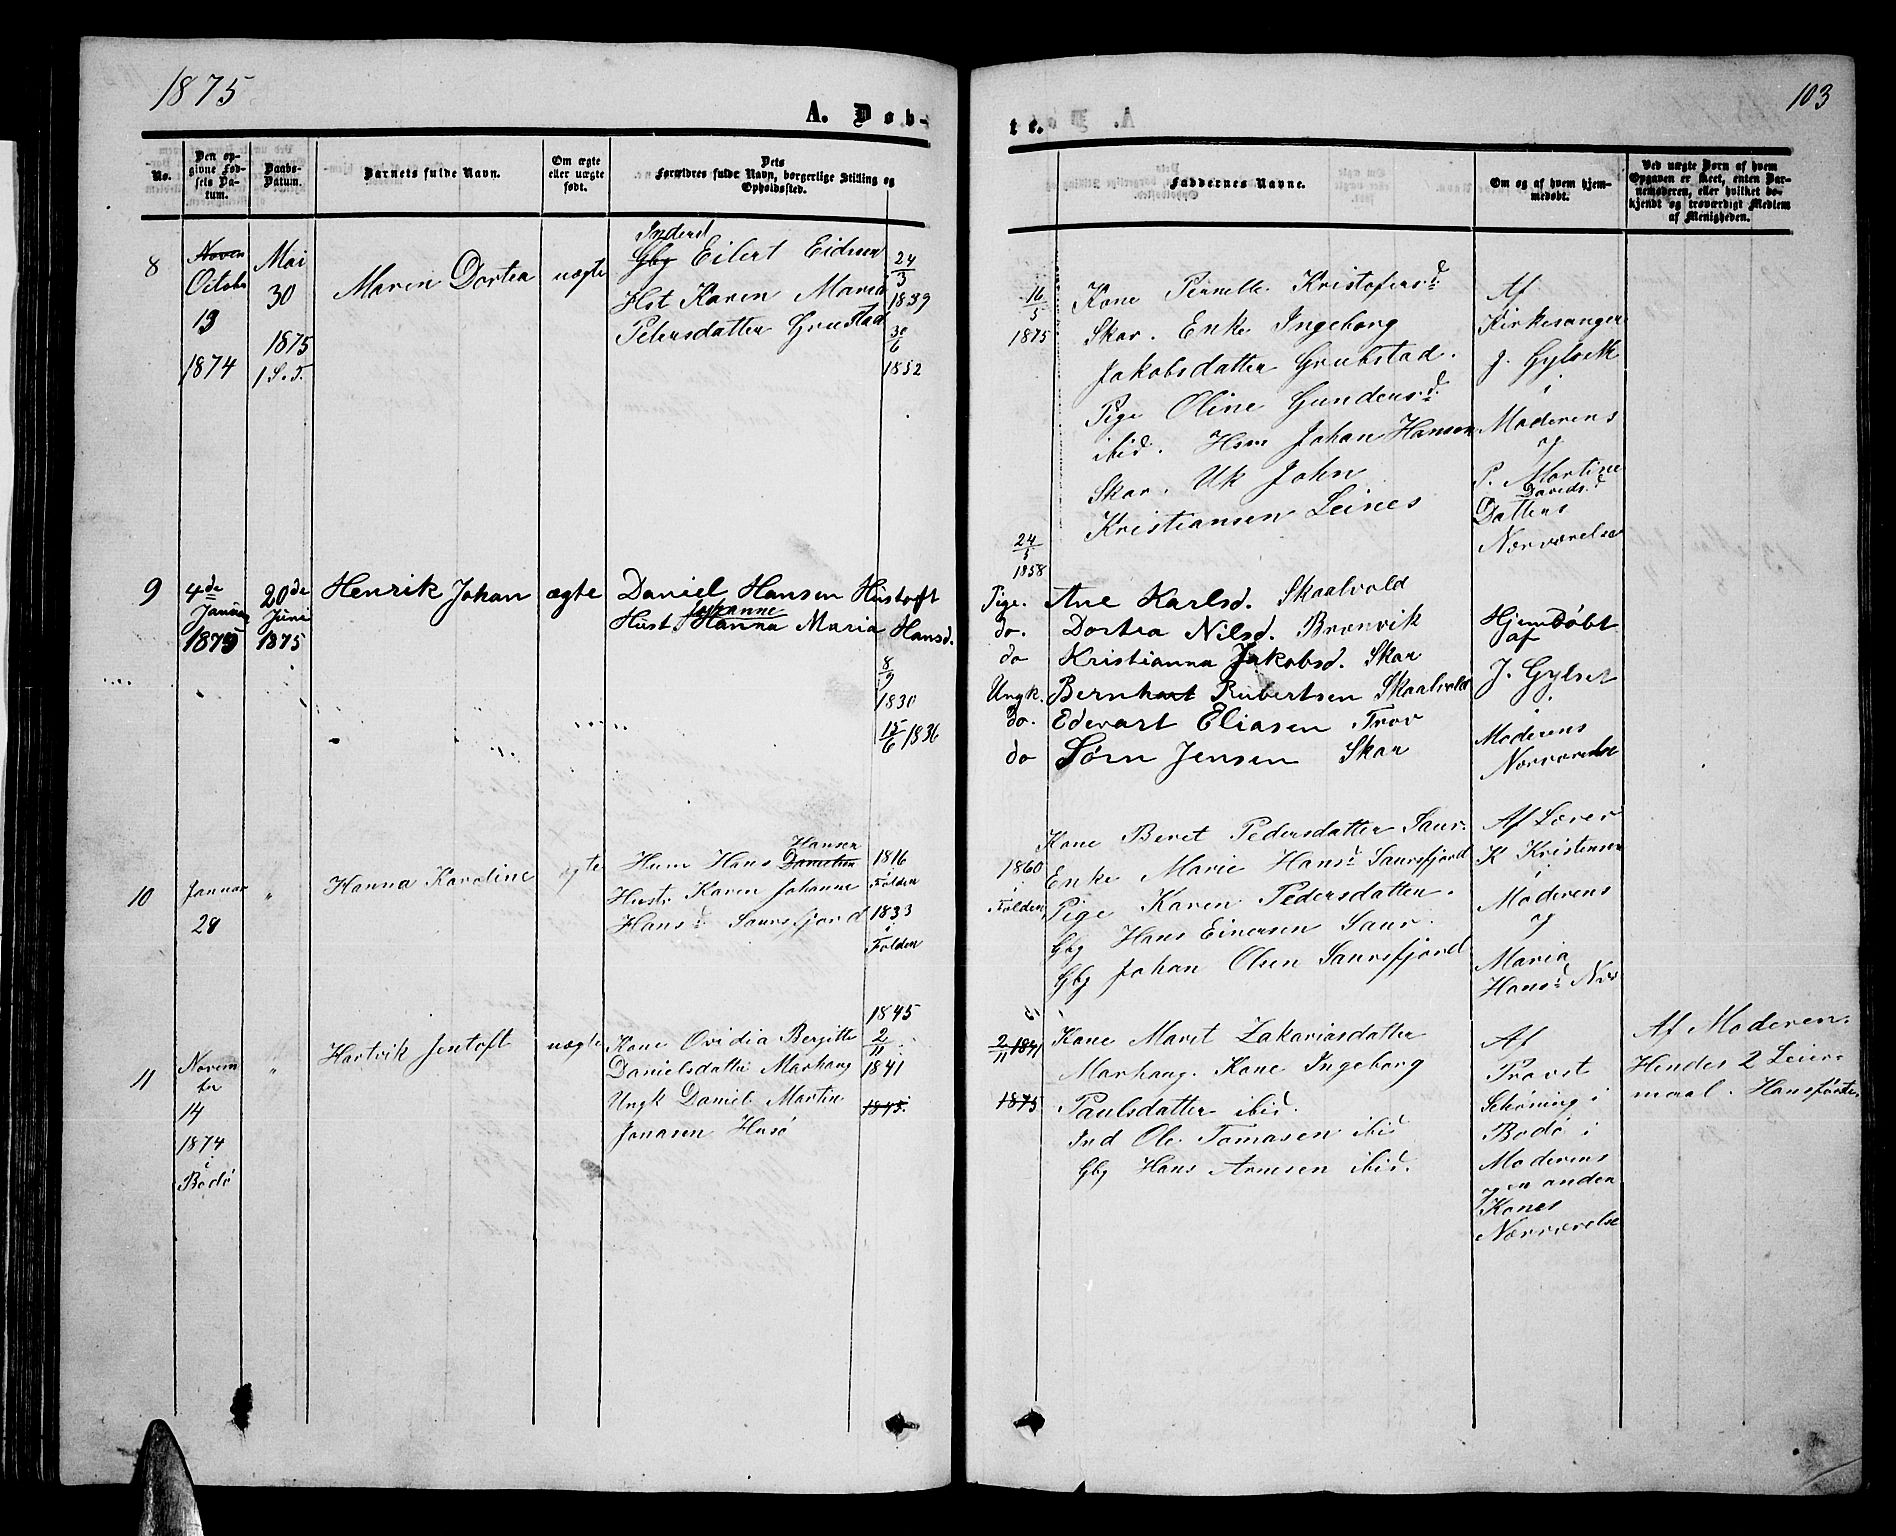 1875
103
A. Døb-
te.
No.
Den op-
givne Fød-
sels Da-
tum.
Daabs-
Datum.
Barnets fulde Navn.
Om ægte
eller uægte
født.
Dets
Forældres fulde Navn, borgerlige Stilling og
Opholdssted.
Faddernes Navne.
Om og af hvem hjem-
medøbt.
Ved uægte Børn af hvem
Opgaven er skeet, enten Bar-
nemoderen, eller hvilket be-
kjendt og troværdigt Medlem
af Menigheden.
8
Novem
Octobr
13
1874
Mai
30
1875
1 S. T.
Maren Dortea
uægte
Inderst
Gbg Eilert Eidsen
Hst Karen Maria
Petersdatter Grustad
24/3
1839
30/6
1852
16/5
1875
Kone Pernelle Kristofersd
Skar. Enke Ingeborg
Jakobsdatter Grubstad.
Pige Oline Gundersd
ibid. Hsm Johan Hansen
Skar. Uk John
Kristiansen Leines
Af
Kirkesanger
J. Gylseth
i
Moderens
og
P. Martine
Davidsd
Datters
Nærværelse
9
4de
Januar
1875
20de
Juni
1875
Henrik Johan
ægte
Daniel Hansen Hustoft
Johanne
Hust. Hanna Maria Hansd.
8/9
1830
15/6 1836
24/5
1858
Pige. Ane Karlsd. Skaalvold
do. Dortea Nilsd. Brænvik
do Kristianna Jakobsd. Skar
Ungk. Bernhart Robertsen Skaalvold
do. Edevart Eliasen Trov
do Sørn Jensen Skar
HjemDøbt
af
J. Gylset
i
Moderens
Nærværelse
10
Januar
28
"
Hanna Karoline
ægte
Hansen
Husm Hans Danielsen
Hustr Karen Johanne
Hansd Saursfjord
1816
Folden
1833
i
Folden
1860
i
Folden
Kone Beret Pedersdatter Saur.
Enke Marie Hansd Saursfjord
Pige Karen Pedersdatter.
Gbg Hans Einersen Saur.
Gbg Johan Olsen Saursfjord
Af Lærer
K Kristensen
i
Moderens
og
Maria
Hansd Nær
11
Novem
ber
14
1874
i
Bodø
"
Hartvik Jentoft
uægte
Kone Ovidia Bergitte
Danielsdatter Marhaug
Ungk Daniel Martin
Jonasen Husø
1845
2/11
1841
1845.
2/11 1841
1875
Kone Maret Zakariasdatter
Marhaug. Kone Ingeborg
Paulsdatter ibid.
Ind Ole Tomasen ibid
Gbg Hans Arnesen ibid.
Af
Provst
Schøning i
Bodø i
Moderens
og en anden
Kones
Nærværelse
Af Moderen.
Hendes 2 Leier-
maal. Hans første.